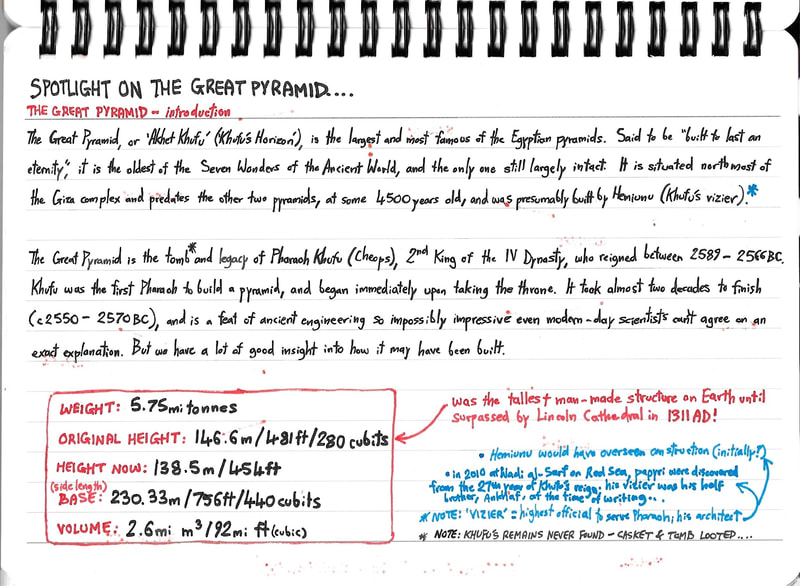 SPOTLIGHT ON THE GREAT PYRAMID....
THE GREAT PYRAMID - introduction
The Great Pyramid, or 'Akhet Khufu' (Khufu's Horizon), is the largest and most famous of the Egyptian pyramids. Said to be "built to last an
eternity", it is the oldest of the Seven Wonders of the Ancient World, and the only one still largely intact. It is situated northmost of
the Giza complex and predates the other two pyramids, at some 4500 years old, and was presumably built by Hemiunu (Khufu's vizier).*
The Great Pyramid is the tomb* and legacy of Pharaoh Khufu (Cheops), 2nd King of the IV Dynasty, who reigned between 2589 - 2566 BC.
Khufu was the first Pharaoh to build a pyramid, and began immediately upon taking the throne. It took almost two decades to finish
(c2550 - 2570 BC), and is a feat of ancient engineering so impossibly impressive even modern-day scientists can't agree on an
exact explanation. But we have a lot of good insight into how it may have been built.
WEIGHT: 5.75mi tonnes
ORIGINAL HEIGHT: 146.6m/481ft/280 cubits
HEIGHT NOW: 138.5m/454ft
(side length)
BASE: 230.33m/756ft/440 cubits
VOLUME: 2.6mi m³/92mi ft (cubic)
was the tallest man-made structure on Earth until
surpassed by Lincoln Cathedral in 1311 AD!
• Hemiunu would have overseen construction (initially!)
• in 2010 at Wadi al-Jarf on Red Sea, papyri were discovered
from the 27th year of Khufu's reign; his vizier was his half
brother, Ankhaf, at the time of writing...
* NOTE: 'VIZIER' = highest official to serve Pharaoh; his architect
* NOTE: KHUFU'S REMAINS NEVER FOUND - CASKET & TOMB LOOTED....